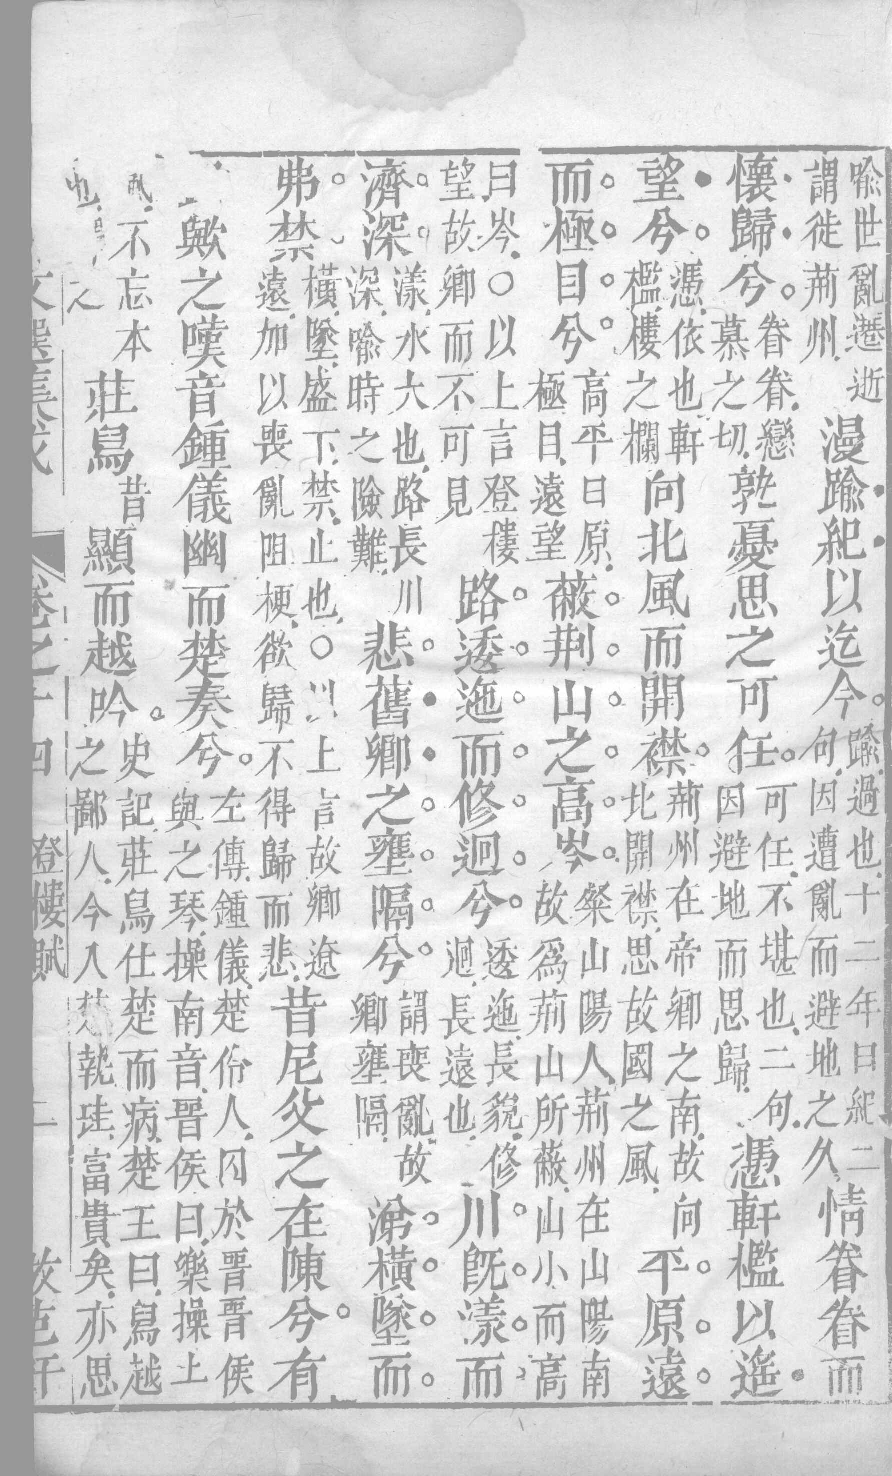 喻世亂遷逝
謂徙荆州
漫踰紀以迄今
踰過也十二年曰紀二
句因遭亂而避地之久
情眷眷而
懷歸兮
眷眷戀
慕之切
孰憂思之可任
可任不堪也二句
因避地而思歸
憑軒檻以遙
望兮
憑依也軒
檻樓之欄
向北風而開襟
荆州在帝鄉之南故向
北開襟思故國之風
平原遠
而極目兮
高平曰原
極目遠望
蔽荆山之高岑
粲山陽人荆州在山陽南
故爲荆山所蔽山小而高
曰岑○以上言登樓
望故鄉而不可見
路逶迤而修迥兮
逶迤長貌修
迥長遠也
川既漾而
濟深
漾水大也路長川
深喻時之險難
悲舊鄉之壅隔兮
謂喪亂故
鄉壅隔
涕橫墜而
弗禁
橫墜盛下禁止也○以上言故鄉遼
遠加以喪亂阻梗欲歸不得歸而悲
昔尼父之在陳兮有
歟之嘆音鍾儀幽而楚奏兮
左傳鍾儀楚伶人囚於晉晉侯
與之琴操南音晉侯曰樂操土
風不忘本
也
莊舄
昔
之
顯而越吟
史記莊舄仕楚而病楚王曰舄越
之鄙人今入楚執珪富貴矣亦思
文選集成 卷之十四 登樓賦 二